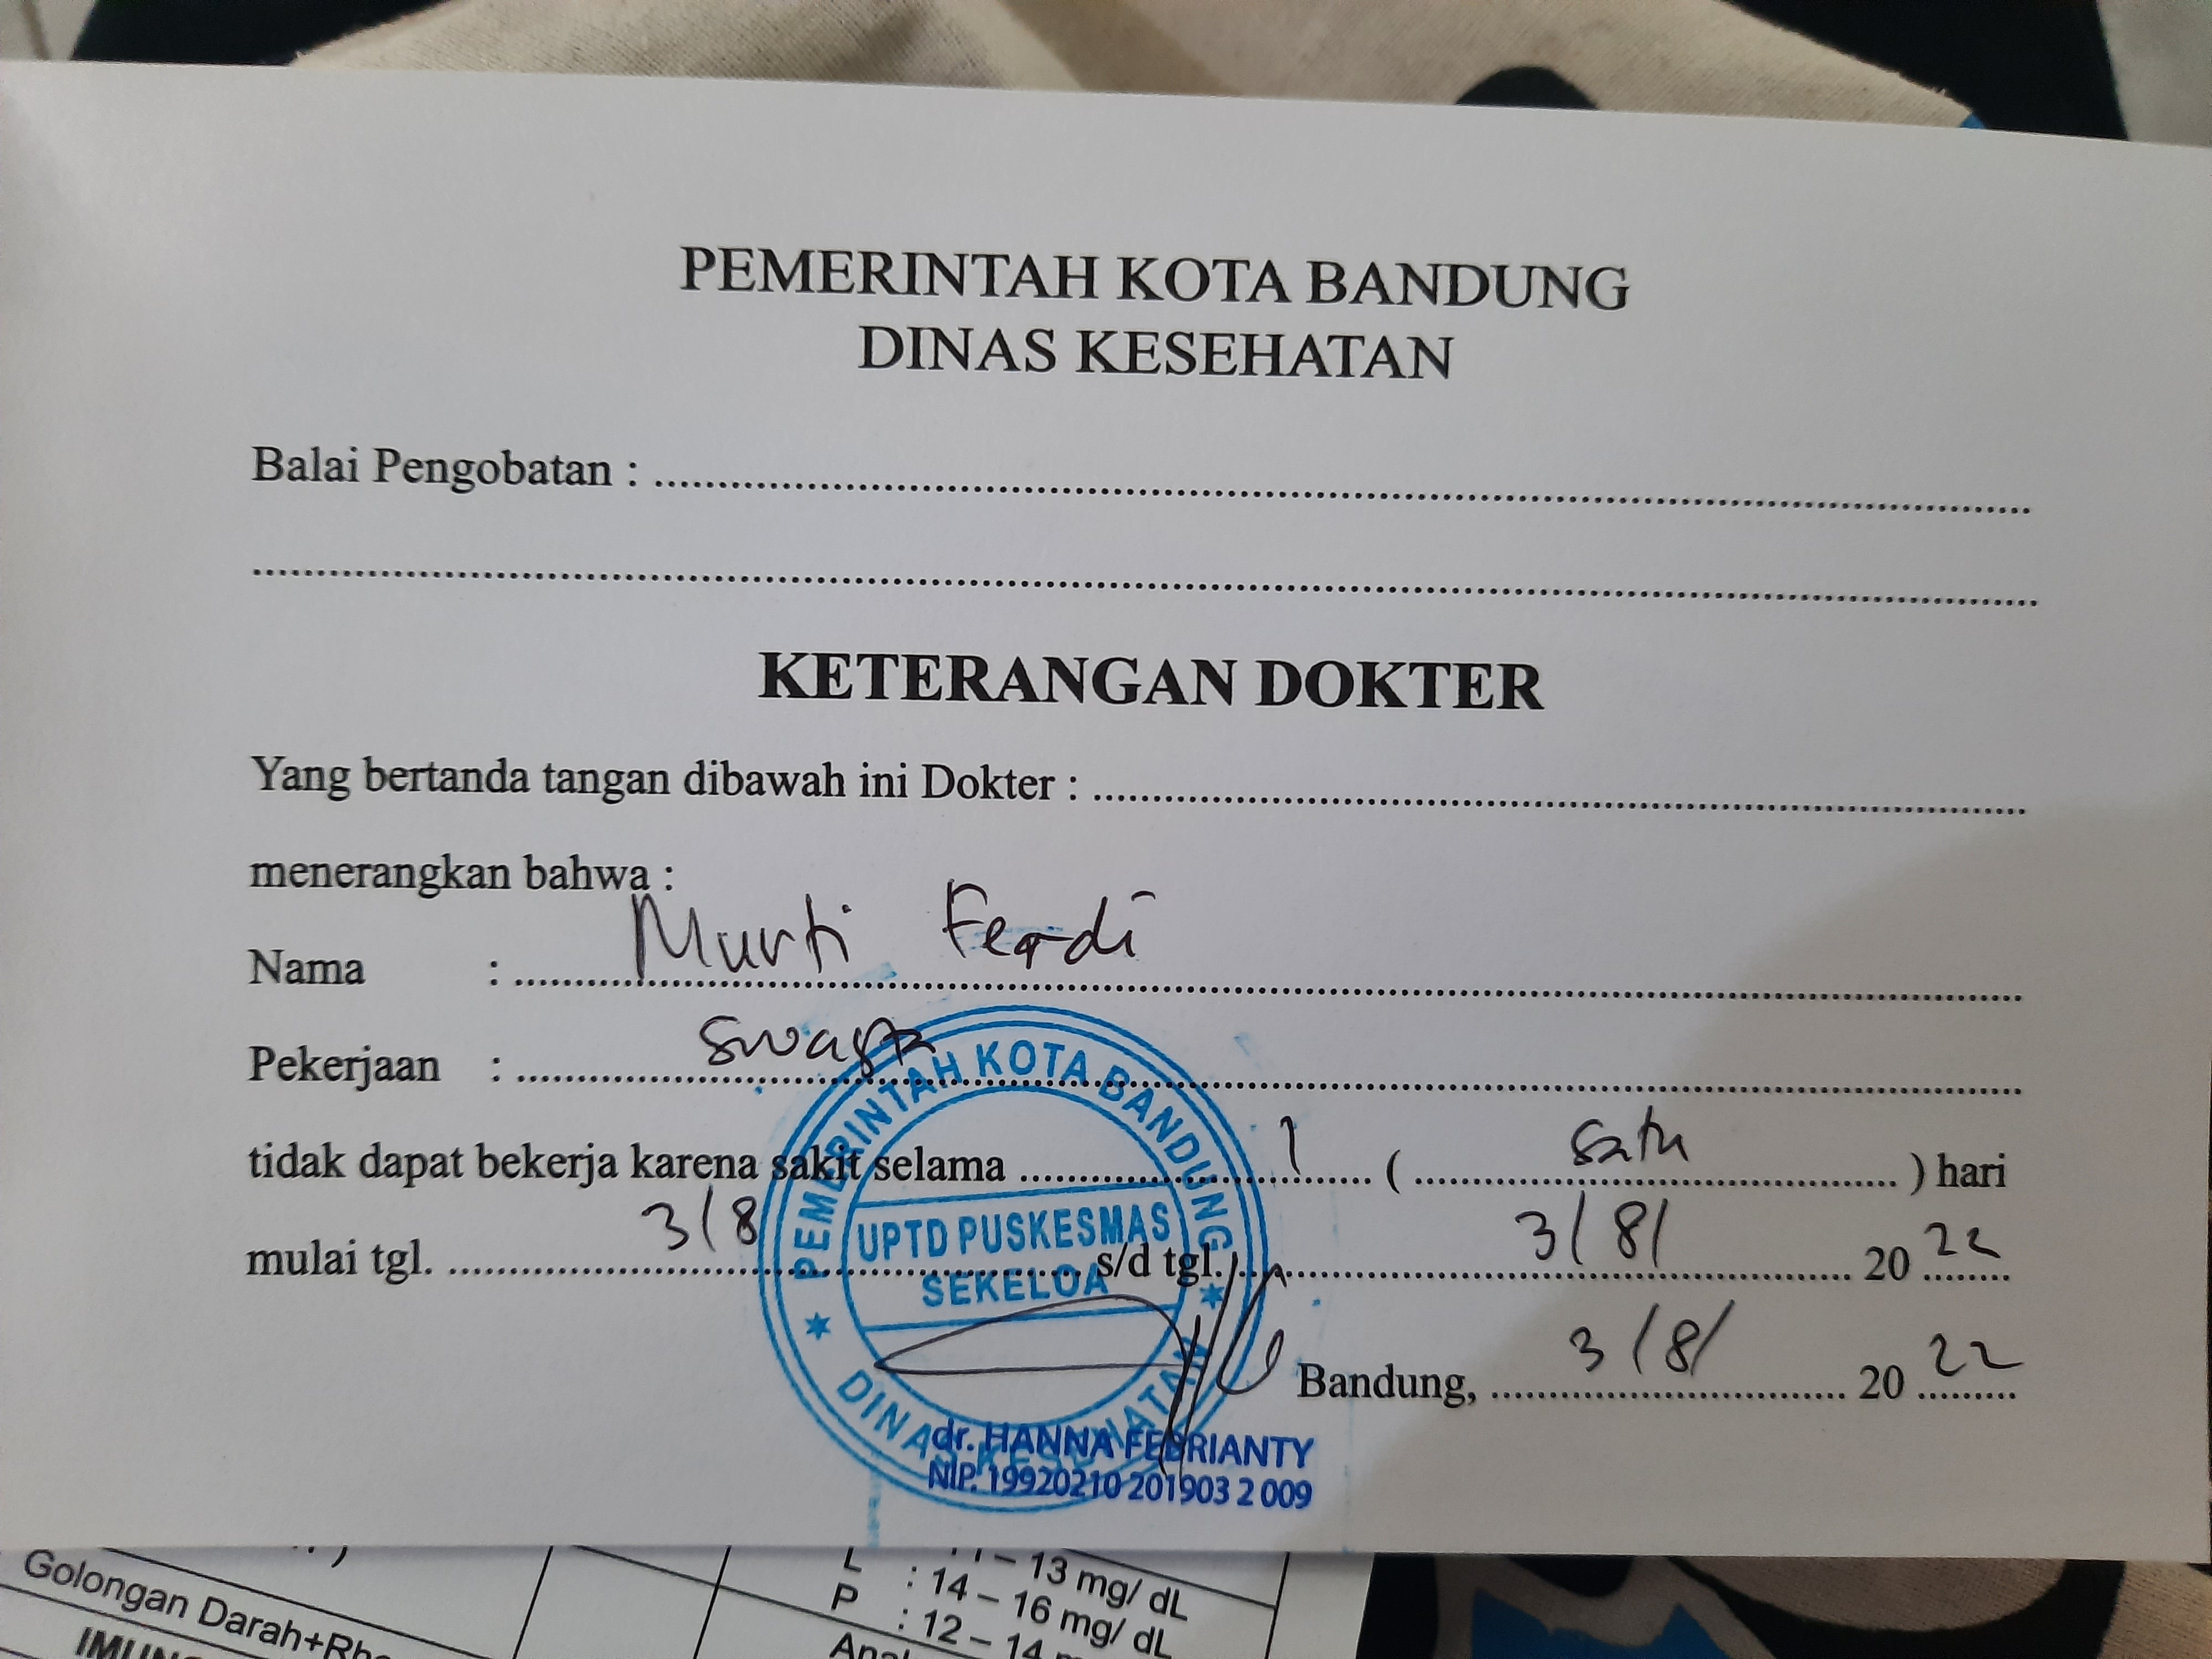 PEMERINTAH KOTA BANDUNG
DINAS KESEHATAN
Balai Pengobatan :
KETERANGAN DOKTER
Yang bertanda tangan dibawah ini Dokter :
menerangkan bahwa :
Nama : Murti Ferdi
Pekerjaan : Swasta
tidak dapat bekerja karena sakit selama 1 ( satu ) hari
mulai tgl. 3/8 s/d tgl. 3/8/ 20 22
Bandung, 3/8/ 20 22
PEMERINTAH KOTA BANDUNG
UPTD PUSKESMAS
SEKELOA
DINAS KESEHATAN
dr. HANNA FEBRIANTY
NIP. 19920210 201903 2 009
– 13 mg/ dL
L : 14 – 16 mg/ dL
P : 12 – 14
Golongan Darah+Rh